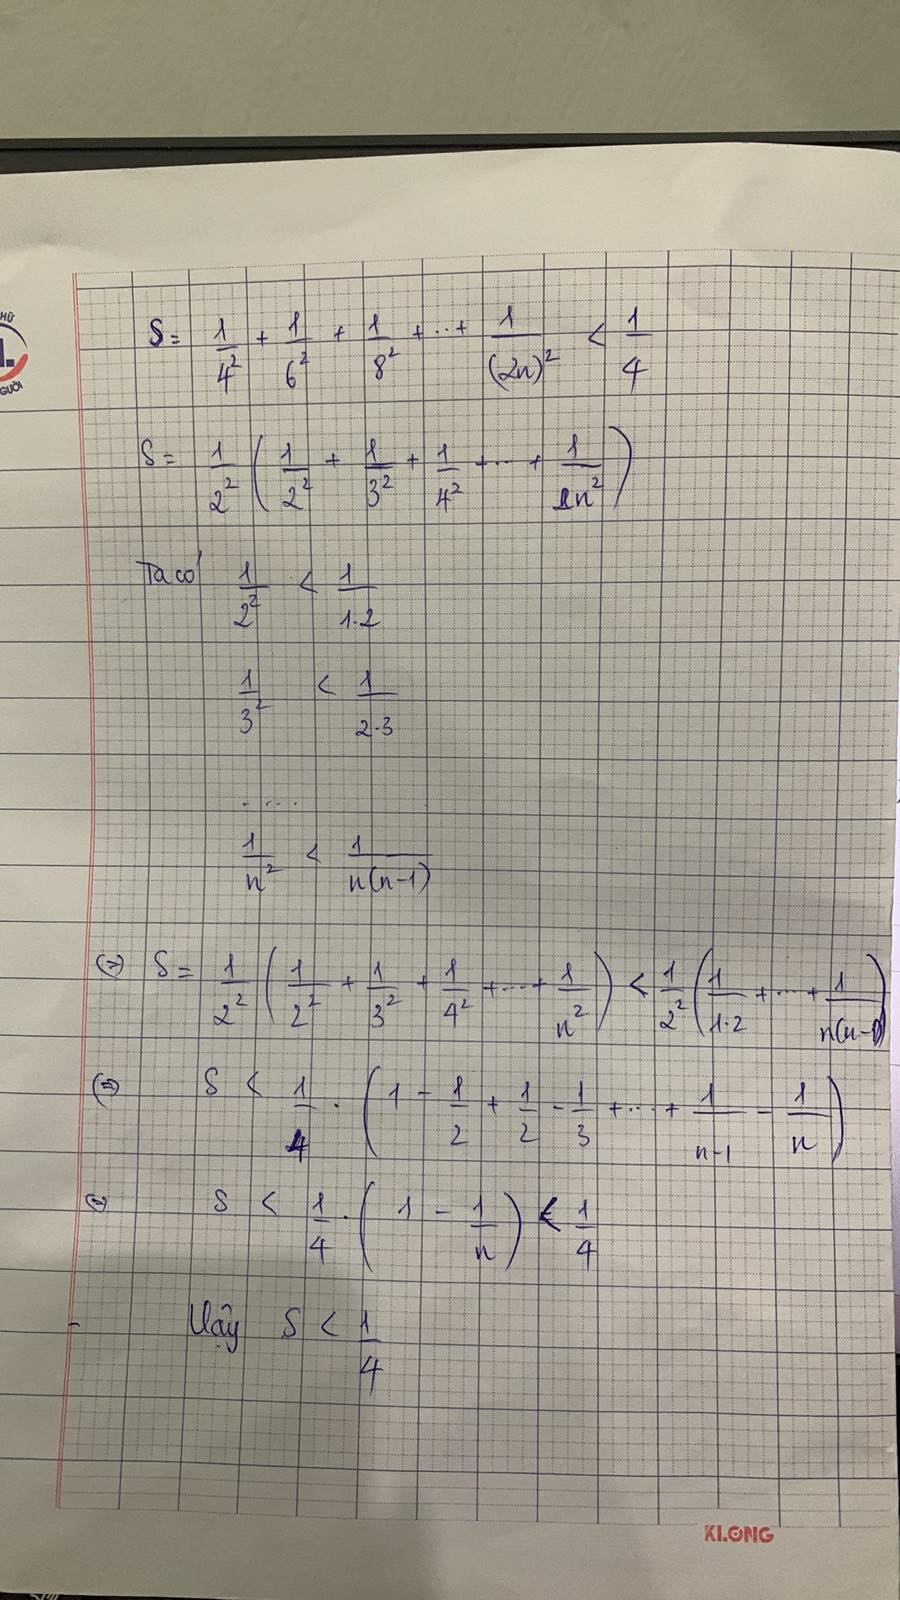 HỮ
GƯỜI
S = 1/4² + 1/6² + 1/8² + ... + 1/(2n)² < 1/4
S = 1/2² (1/2² + 1/3² + 1/4² + ... + 1/n²)
Ta có 1/2² < 1/1.2
1/3² < 1/2.3
.....
1/n² < 1/n(n-1)
(=>) S = 1/2² (1/2² + 1/3² + 1/4² + ... + 1/n²) < 1/2² (1/1.2 + ... + 1/n(n-1))
(=>) S < 1/4 . (1 - 1/2 + 1/2 - 1/3 + ... + 1/n-1 - 1/n)
(=>) S < 1/4 . (1 - 1/n) < 1/4
- Vậy S < 1/4
KLONG